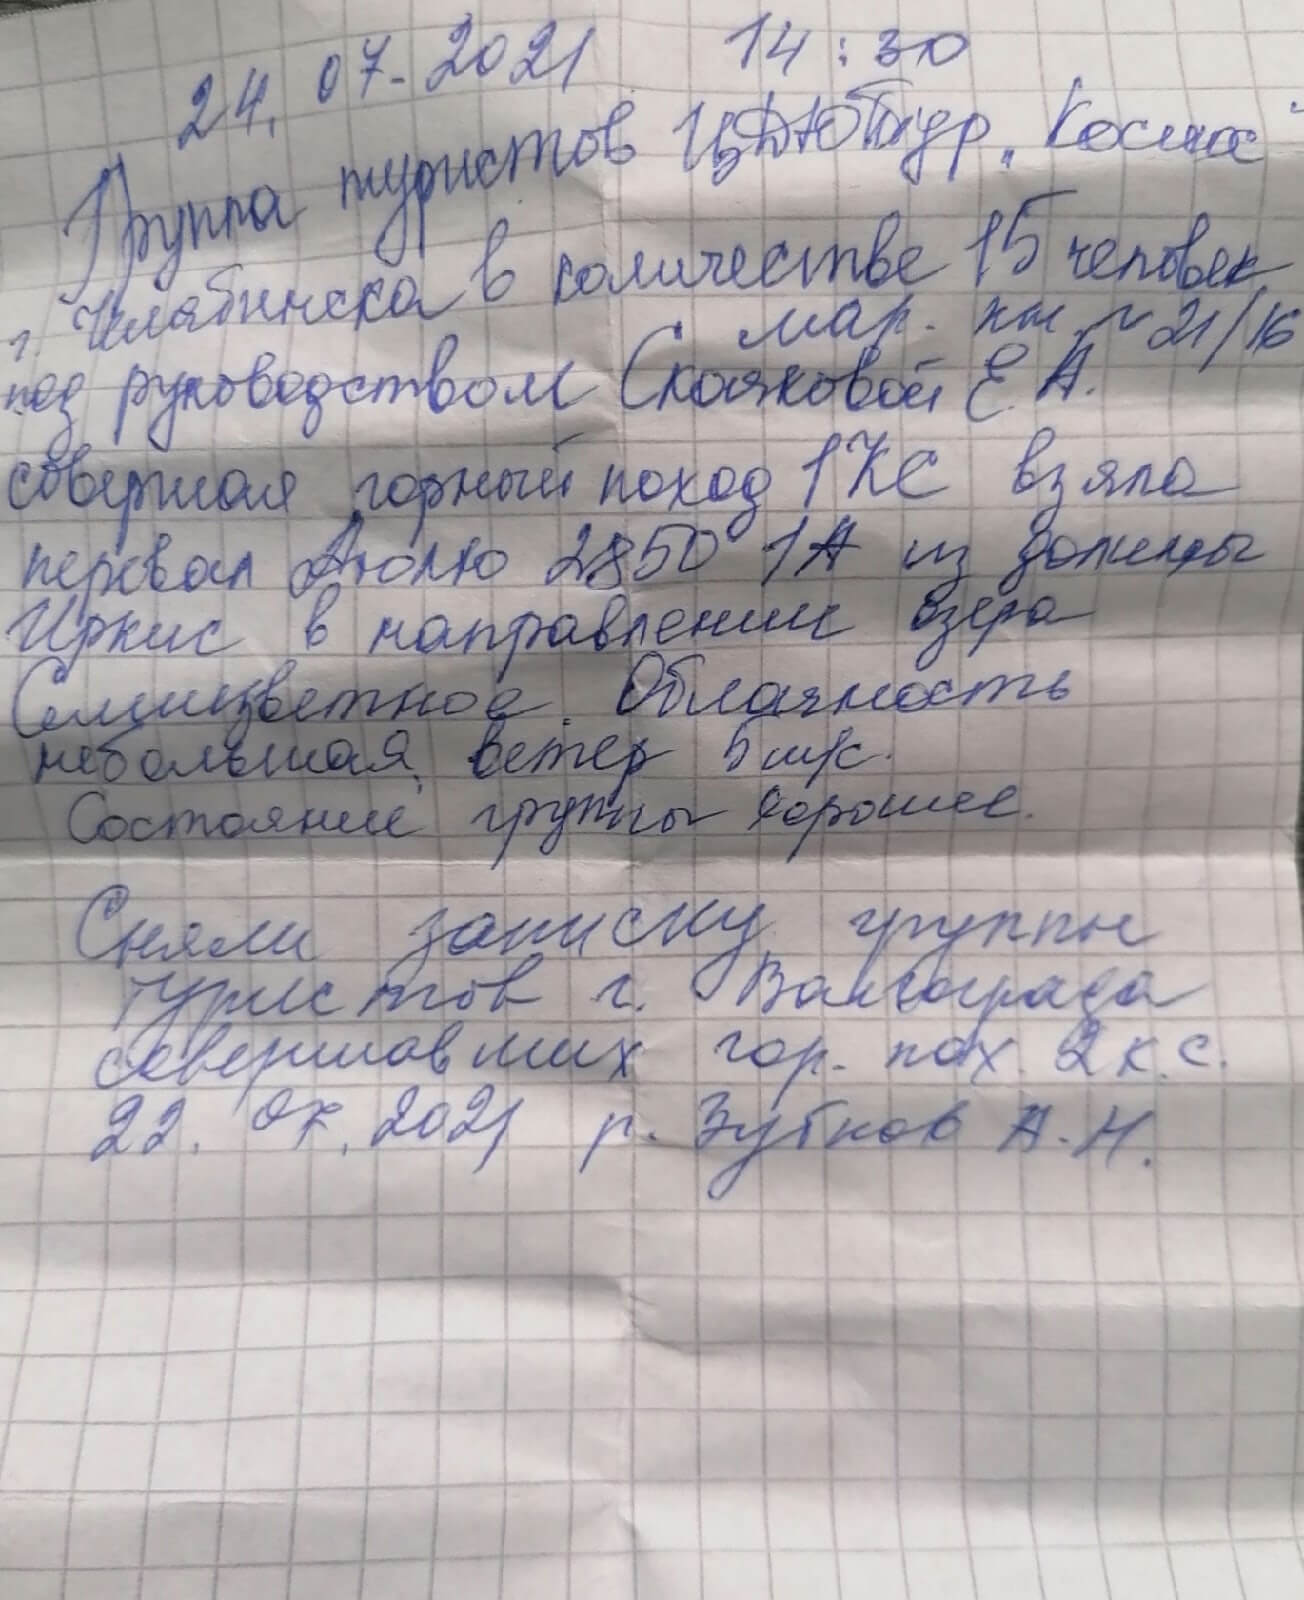 24. 07-2021 14:30
Группа туристов ЦДЮТур „Космос"
г. Челябинска в количестве 15 человек
мар. кн. № 21/16
под руководством Е. А.
совершая горный поход 1КС взяла
перевал Аюлю 2850 1А из долины
Иркис в направлении озера
Семицветное. Облачность
небольшая, ветер 5 м/с.
Состояние группы хорошее.
Сняли записку группы
туристов г. Волгограда
совершавших гор. пох. 2 к.с.
22. 07. 2021 р. Зубков А. Н.